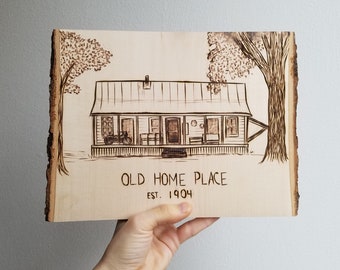 OLD HOME PLACE
EST. 1904